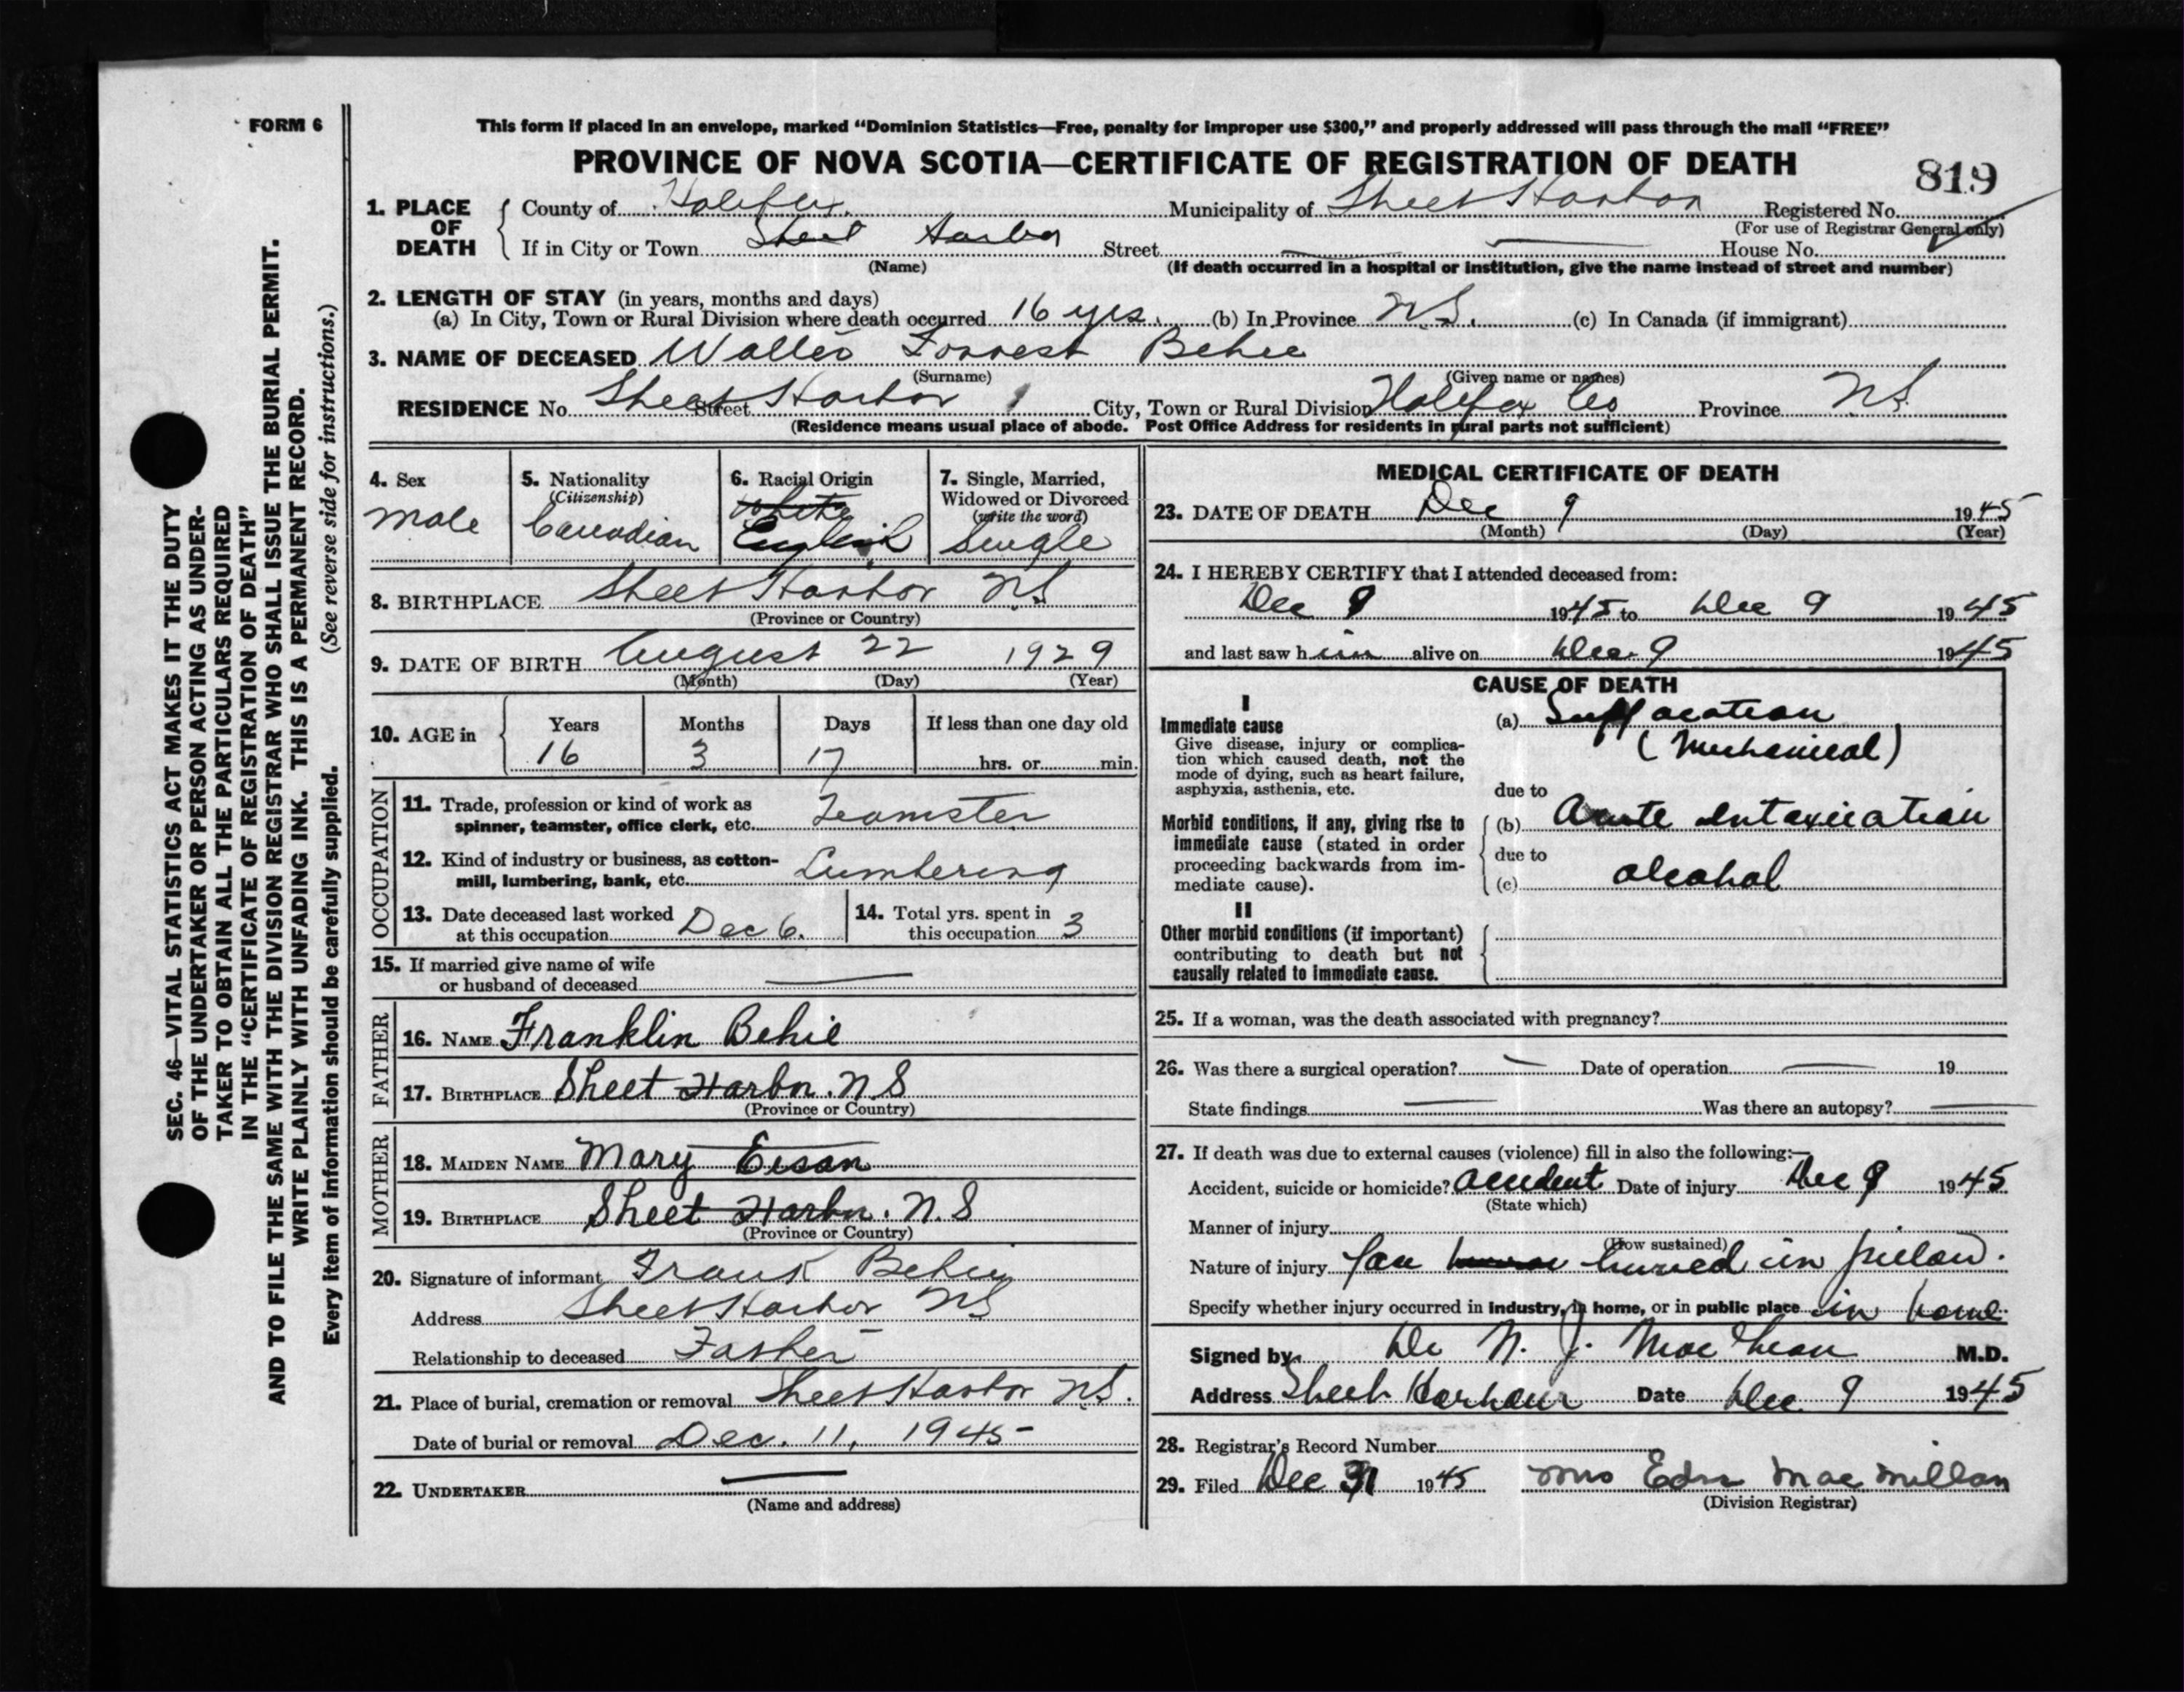 FORM 6
This form if placed in an envelope, marked “Dominion Statistics—Free, penalty for improper use $300,” and properly addressed will pass through the mail “FREE”
PROVINCE OF NOVA SCOTIA—CERTIFICATE OF REGISTRATION OF DEATH
819
1. PLACE OF DEATH
County of Halifax. Municipality of Sheet Harbor Registered No.
(For use of Registrar General only)
If in City or Town Sheet Harbor Street House No.
(Name) (If death occurred in a hospital or institution, give the name instead of street and number)
2. LENGTH OF STAY (in years, months and days)
(a) In City, Town or Rural Division where death occurred 16 yrs. (b) In Province N.S. (c) In Canada (if immigrant)
3. NAME OF DECEASED Forrest Behie
(Surname) (Given name or names)
RESIDENCE No. Sheet Harbor Street City, Town or Rural Division Halifax Co Province NS
(Residence means usual place of abode. Post Office Address for residents in rural parts not sufficient)
4. Sex
Male
5. Nationality
(Citizenship)
Canadian
6. Racial Origin
White
English
7. Single, Married,
Widowed or Divorced
(write the word)
Single
8. BIRTHPLACE Sheet Harbor N.S
(Province or Country)
9. DATE OF BIRTH August 22 1929
(Month) (Day) (Year)
10. AGE in Years Months Days If less than one day old
16 3 17 hrs. or min.
OCCUPATION
11. Trade, profession or kind of work as
spinner, teamster, office clerk, etc. Teamster
12. Kind of industry or business, as cotton-
mill, lumbering, bank, etc. Lumbering
13. Date deceased last worked
at this occupation Dec 6.
14. Total yrs. spent in
this occupation 3
15. If married give name of wife
or husband of deceased
FATHER
16. NAME Franklin Behie
17. BIRTHPLACE Sheet Harbor. N.S
(Province or Country)
MOTHER
18. MAIDEN NAME Mary Eisan
19. BIRTHPLACE Sheet Harbor. N.S
(Province or Country)
20. Signature of informant Frank Behie
Address Sheet Harbor NS
Relationship to deceased Father
21. Place of burial, cremation or removal Sheet Harbor N.S.
Date of burial or removal Dec. 11, 1945
22. UNDERTAKER
(Name and address)
MEDICAL CERTIFICATE OF DEATH
23. DATE OF DEATH Dec 9 1945
(Month) (Day) (Year)
24. I HEREBY CERTIFY that I attended deceased from:
Dec 9 1945 to Dec 9 1945
and last saw him alive on Dec. 9 1945
CAUSE OF DEATH
I
Immediate cause
Give disease, injury or complica-
tion which caused death, not the
mode of dying, such as heart failure,
asphyxia, asthenia, etc.
(a) Suffocation
(Mechanical)
due to
Morbid conditions, if any, giving rise to
immediate cause (stated in order
proceeding backwards from im-
mediate cause).
(b) Acute Intoxication
due to
(c) alcohol
II
Other morbid conditions (if important)
contributing to death but not
causally related to immediate cause.
25. If a woman, was the death associated with pregnancy?
26. Was there a surgical operation? Date of operation 19
State findings Was there an autopsy?
27. If death was due to external causes (violence) fill in also the following:—
Accident, suicide or homicide? accident Date of injury Dec 9 1945
(State which)
Manner of injury
(How sustained)
Nature of injury face buried in pillow.
Specify whether injury occurred in industry, in home, or in public place in home
Signed by Dr N. J. MacLean M.D.
Address Sheet Harbour Date Dec. 9 1945
28. Registrar's Record Number
29. Filed Dec 31 1945 Mrs Edn MacMillan
(Division Registrar)
SEC. 46—VITAL STATISTICS ACT MAKES IT THE DUTY
OF THE UNDERTAKER OR PERSON ACTING AS UNDER-
TAKER TO OBTAIN ALL THE PARTICULARS REQUIRED
IN THE “CERTIFICATE OF REGISTRATION OF DEATH”
AND TO FILE THE SAME WITH THE DIVISION REGISTRAR WHO SHALL ISSUE THE BURIAL PERMIT.
WRITE PLAINLY WITH UNFADING INK. THIS IS A PERMANENT RECORD.
Every item of information should be carefully supplied. (See reverse side for instructions.)